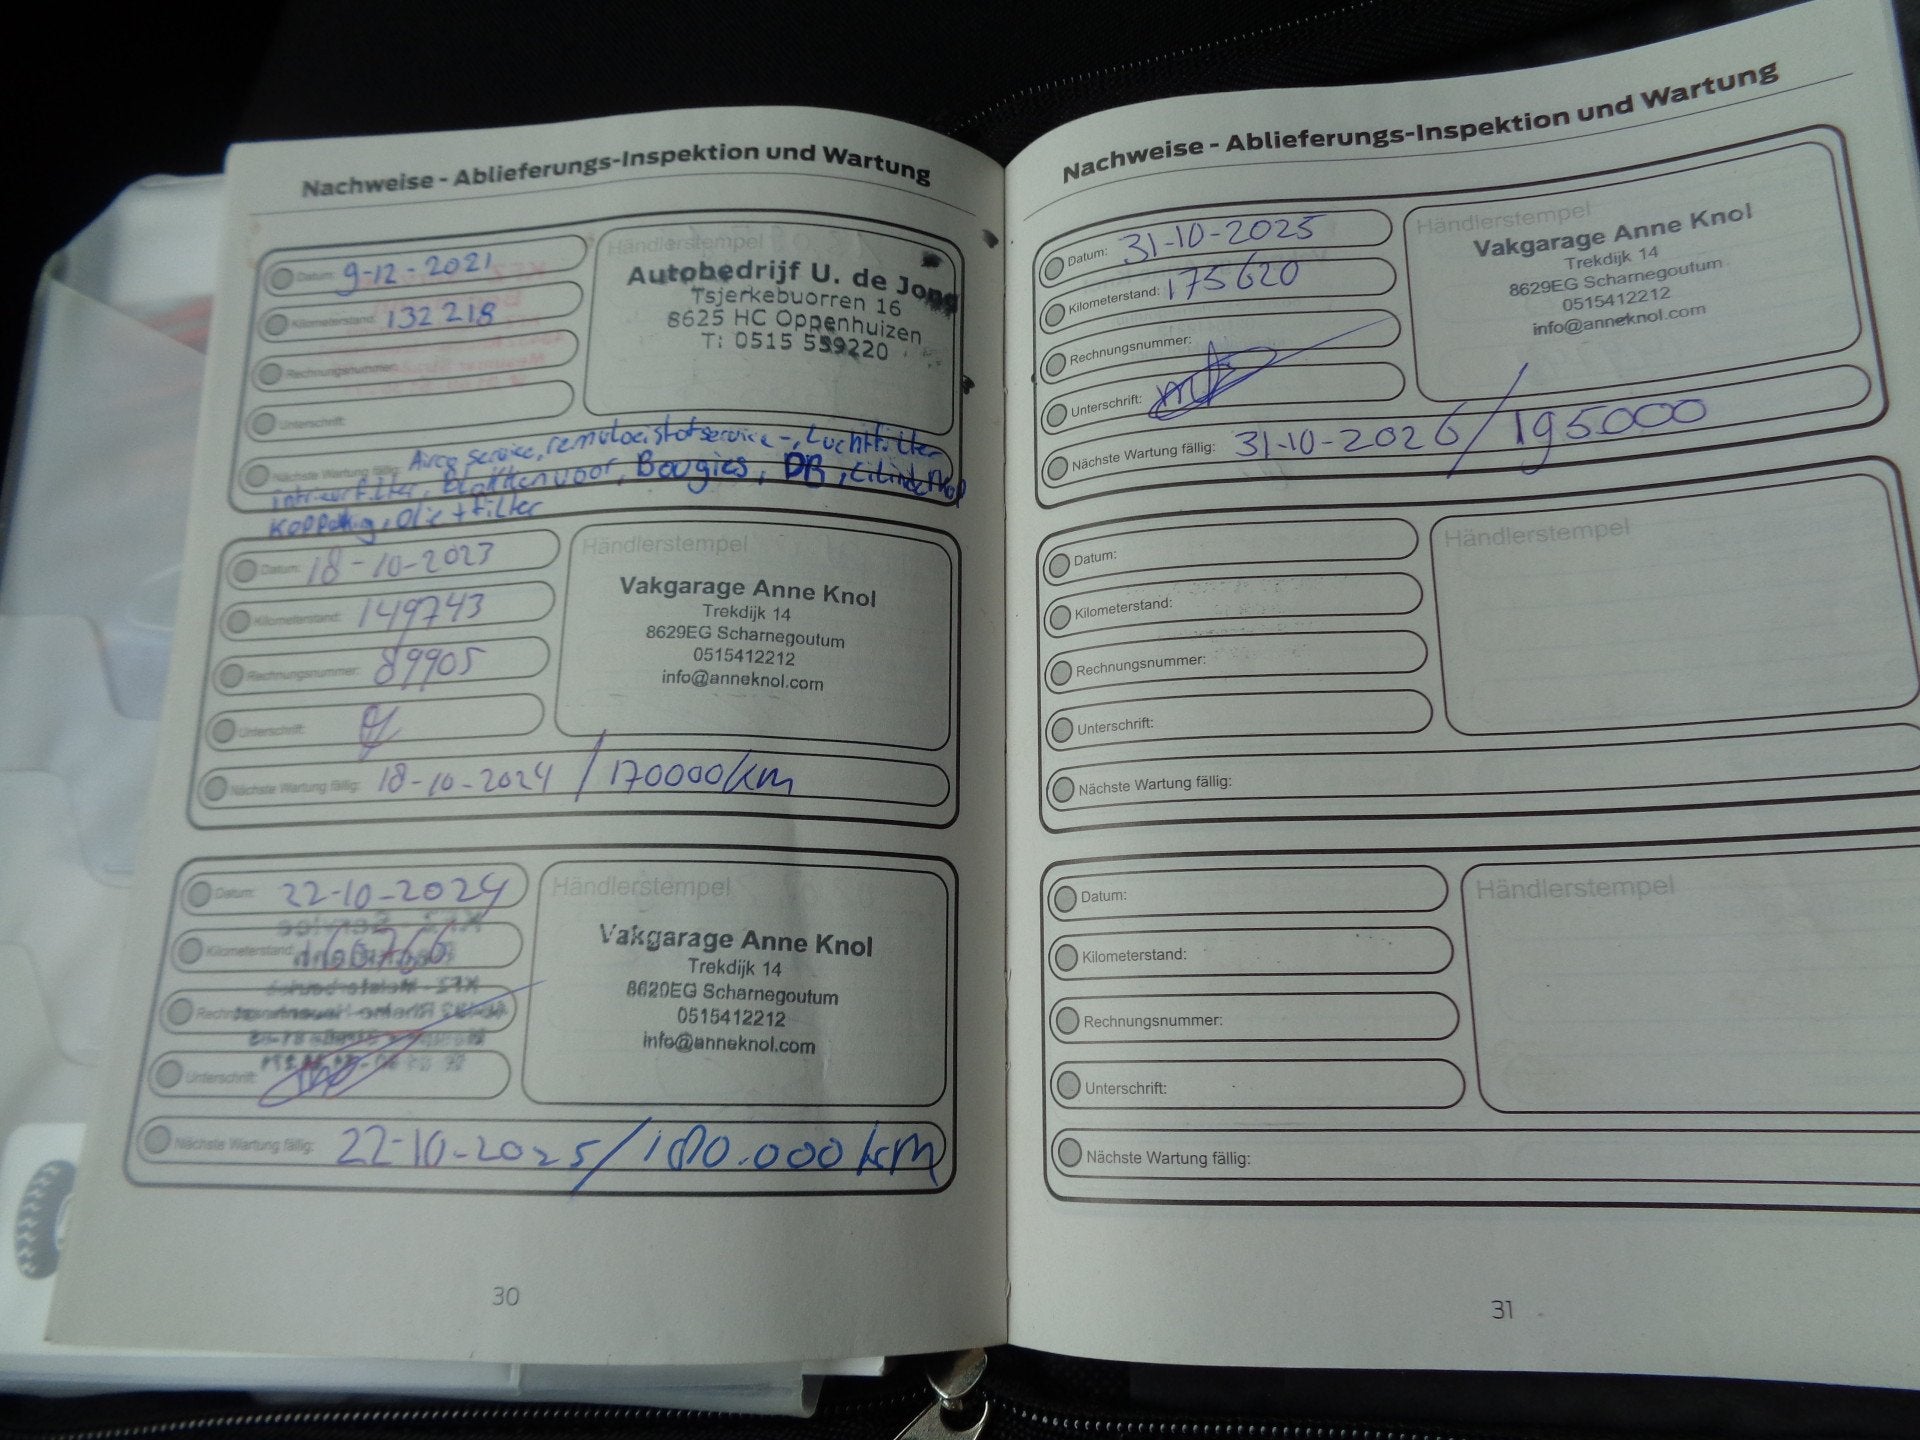 Nachweise - Ablieferungs-Inspektion und Wartung
Datum: 9-12-2021
Kilometerstand: 132218
Rechnungsnummer:
Unterschrift:
Händlerstempel
Autobedrijf U. de Jong
Tsjerkebuorren 16
8625 HC Oppenhuizen
T: 0515 559220
Nächste Wartung fällig: Airco service, remvloeistof service -, Luchtfilter
intrieurfilter, Blatten voor, Bougies, DR, Cilinderkop
Kopp, Olie + filter
Datum: 18-10-2023
Kilometerstand: 149743
Rechnungsnummer: 89905
Unterschrift:
Händlerstempel
Vakgarage Anne Knol
Trekdijk 14
8629EG Scharnegoutum
0515412212
info@anneknol.com
Nächste Wartung fällig: 18-10-2024 / 170000km
Datum: 22-10-2024
Kilometerstand:
Rechnungsnummer:
Unterschrift:
Händlerstempel
Vakgarage Anne Knol
Trekdijk 14
8629EG Scharnegoutum
0515412212
info@anneknol.com
Nächste Wartung fällig: 22-10-2025 / 180.000 km
30
Nachweise - Ablieferungs-Inspektion und Wartung
Datum: 31-10-2025
Kilometerstand: 175620
Rechnungsnummer:
Unterschrift:
Händlerstempel
Vakgarage Anne Knol
Trekdijk 14
8629EG Scharnegoutum
0515412212
info@anneknol.com
Nächste Wartung fällig: 31-10-2026 / 195000
Datum:
Kilometerstand:
Rechnungsnummer:
Unterschrift:
Händlerstempel
Nächste Wartung fällig:
Datum:
Kilometerstand:
Rechnungsnummer:
Unterschrift:
Händlerstempel
Nächste Wartung fällig:
31